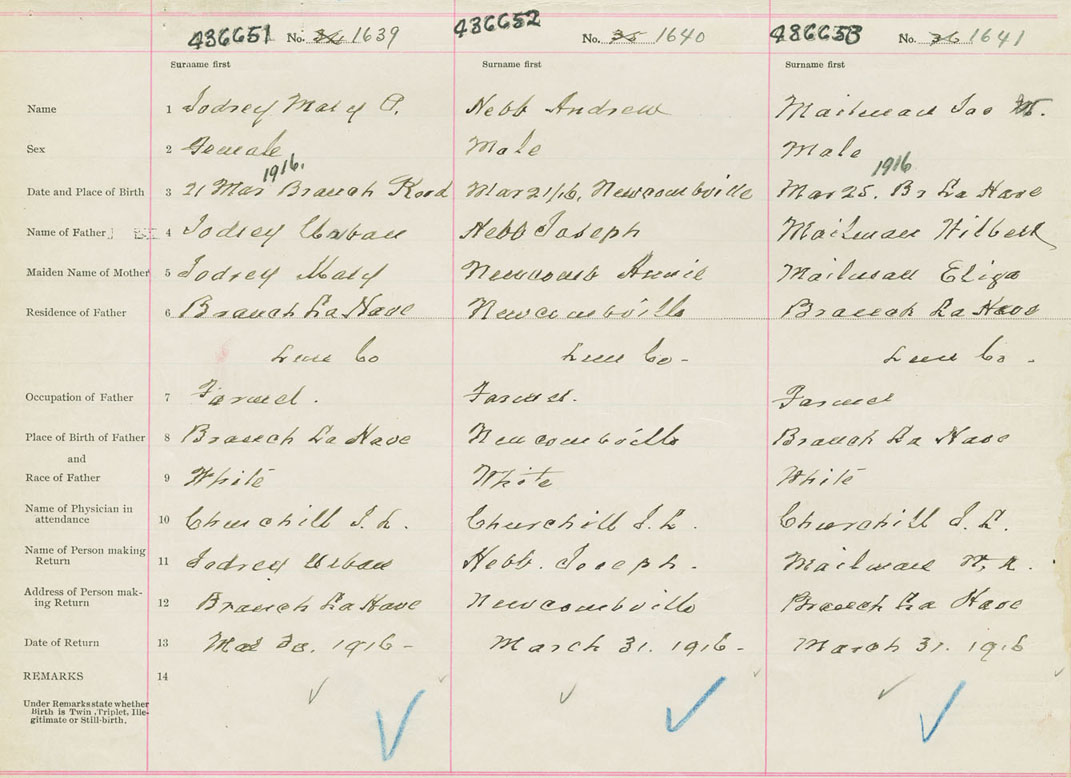 436651 No. 36 1639 436652 No. 35 1640 436653 No. 36 1641
Surname first Surname first Surname first
Name 1 Jodrey Mary P. Hebb Andrew Mailman Jas M.
Sex 2 Female Male Male
1916. 1916
Date and Place of Birth 3 21 Mar Branch Road Mar 21/16, Newcombville Mar 25. Br La Have
Name of Father 4 Jodrey Urban Hebb Joseph Mailman Wilbert
Maiden Name of Mother 5 Jodrey Mary Newcomb Annie Mailman Eliza
Residence of Father 6 Branch La Have Newcombville Branch La Have
Lun Co Lun Co - Lun Co -
Occupation of Father 7 Farmer. Farmer. Farmer
Place of Birth of Father 8 Branch La Have Newcombville Branch La Have
and
Race of Father 9 White White White
Name of Physician in
attendance 10 Churchill J. L. Churchill J. L. Churchill J. L.
Name of Person making
Return 11 Jodrey Urban Hebb. Joseph. Mailman
Address of Person mak-
ing Return 12 Branch La Have Newcombville Branch La Have
Date of Return 13 Mar 30. 1916 - March 31. 1916 - March 31. 1916
REMARKS 14
Under Remarks state whether
Birth is Twin, Triplet, Ille-
gitimate or Still-birth.